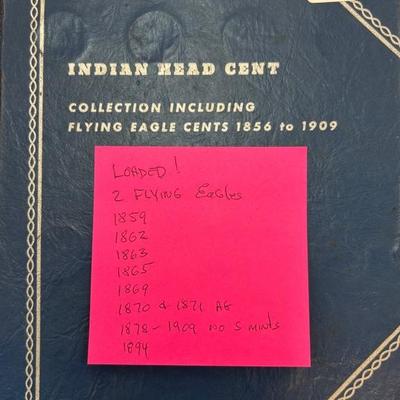 INDIAN HEAD CENT
COLLECTION INCLUDING
FLYING EAGLE CENTS 1856 to 1909
LOADED!
2 FLYING Eagles
1859
1862
1863
1865
1869
1870 & 1871 AG
1878-1909 no S mints
1894